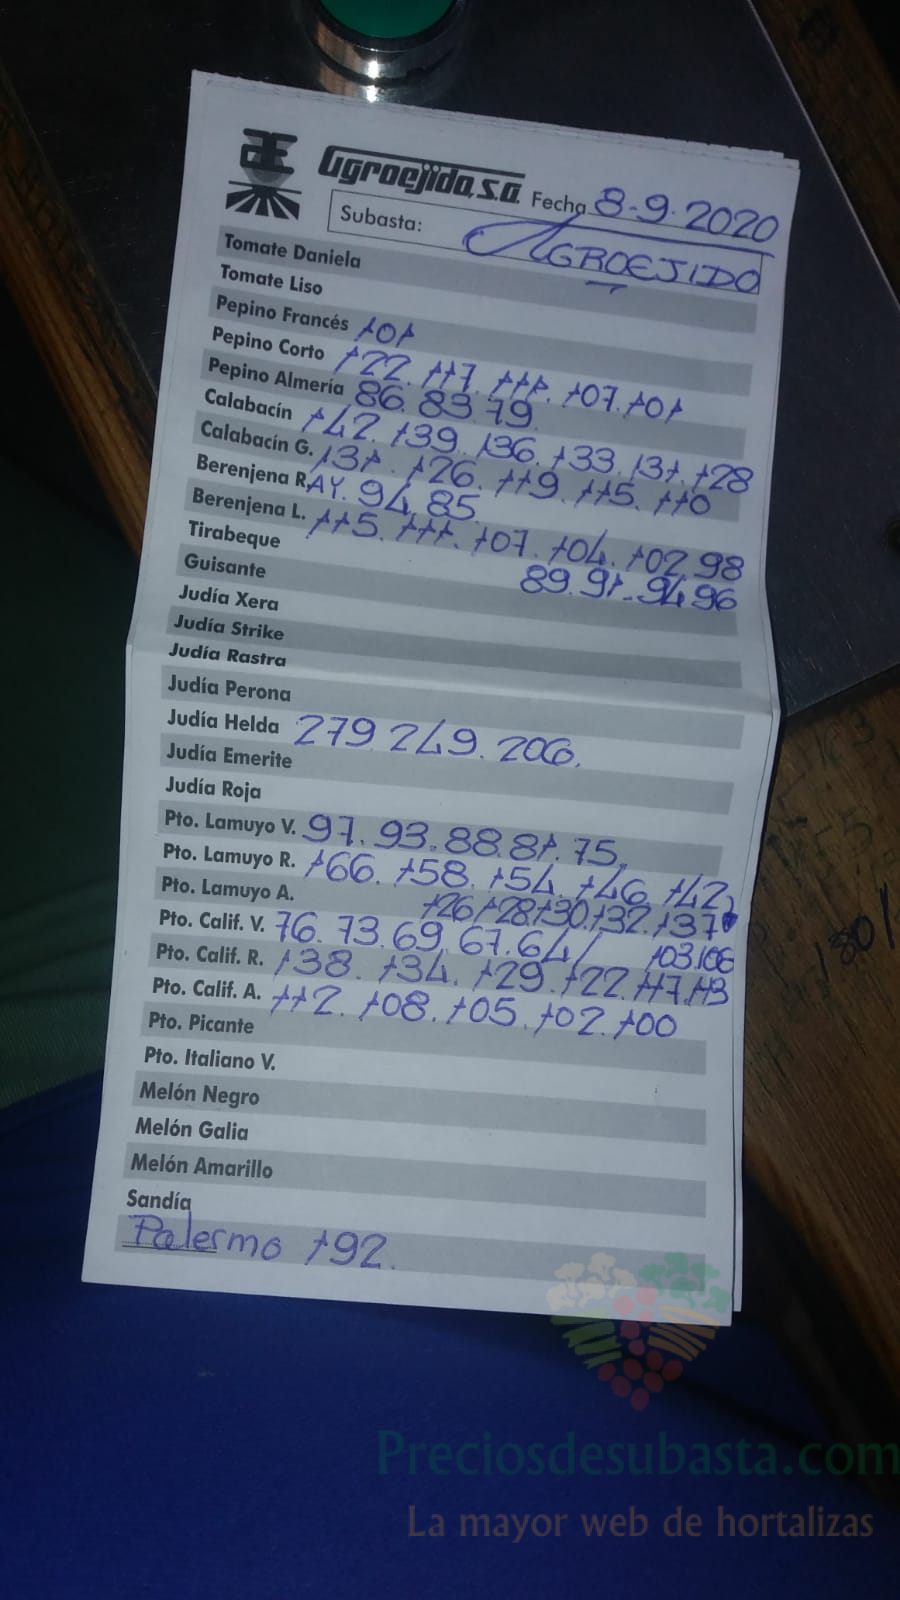 Agroejido, s.a. Fecha 8-9-2020
Subasta: AGROEJIDO
Tomate Daniela
Tomate Liso
Pepino Francés 101
Pepino Corto 122. 117. 111. 107. 101
Pepino Almería 86. 83 79
Calabacín 142. 139. 136. 133. 131. 128
Calabacín G. 131. 126. 119. 115. 110
Berenjena RAY. 94. 85.
Berenjena L. 115. 111. 107. 104. 102. 98
Tirabeque 89. 91. 94. 96
Guisante
Judía Xera
Judía Strike
Judía Rastra
Judía Perona
Judía Helda 279. 249. 206.
Judía Emerite
Judía Roja
Pto. Lamuyo V. 97. 93. 88. 81. 75.
Pto. Lamuyo R. 166. 158. 154. 146. 142,
Pto. Lamuyo A. 126. 128. 130. 132. 137
Pto. Calif. V. 76. 73. 69. 67. 64 / 103. 106
Pto. Calif. R. 138. 134. 129. 122. 117. 113
Pto. Calif. A. 112. 108. 105. 102. 100
Pto. Picante
Pto. Italiano V.
Melón Negro
Melón Galia
Melón Amarillo
Sandía
Palermo 192.
Preciosdesubasta.com
La mayor web de hortalizas